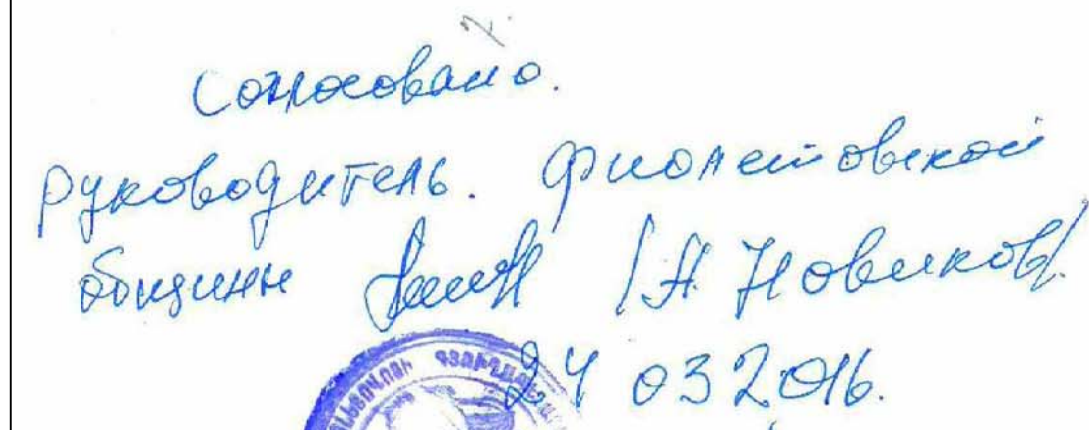 Согласовано.
Руководитель. Фиолетовской
общины /А. Новиков/.
24 03 2016.